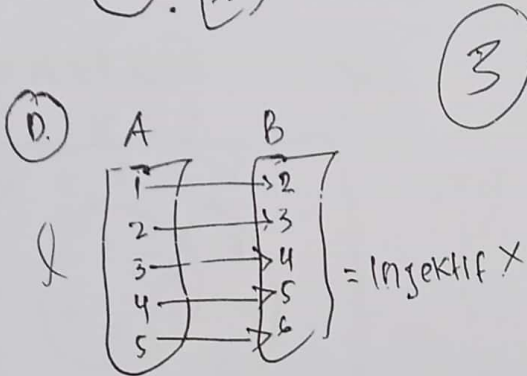 3
D. A B
1 2
2 3
3 4
4 5
5 6
= Injektif X